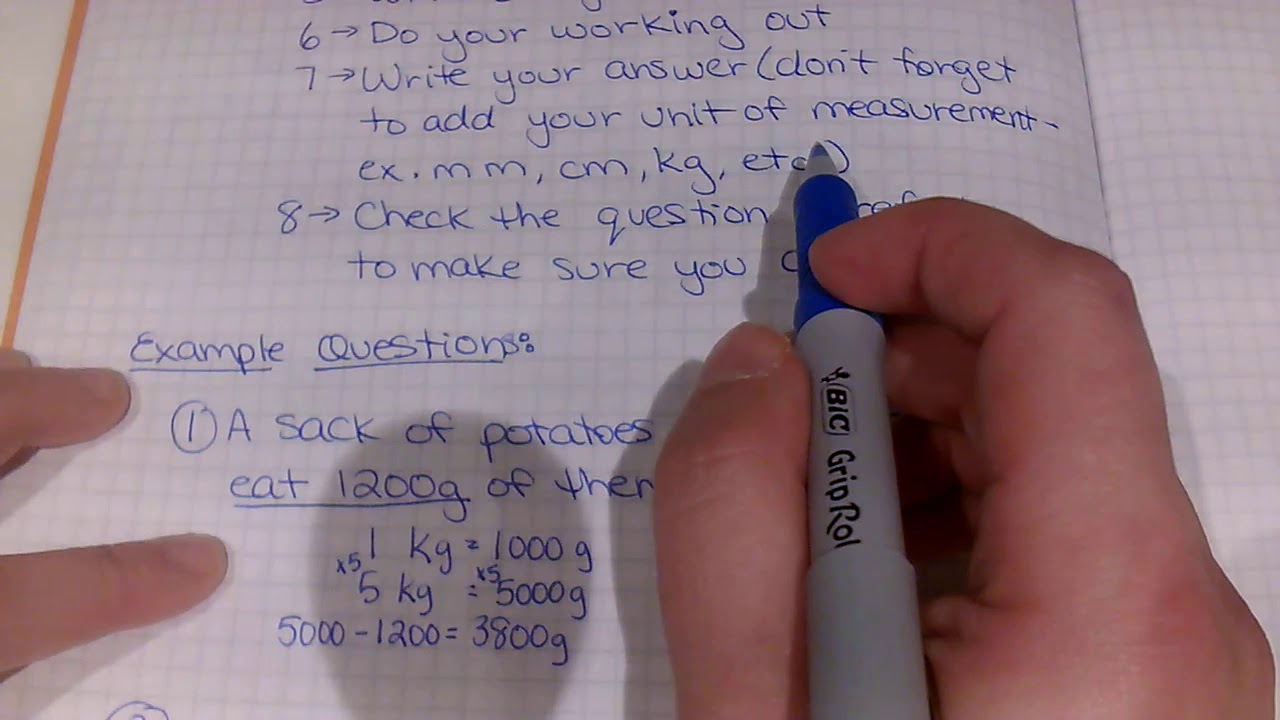 6→ Do your working out
7→ Write your answer (don't forget
to add your unit of measurement-
ex. mm, cm, kg, etc.)
8→ Check the question
to make sure you
Example Questions:
① A sack of potatoes
eat 1200g of
1 kg = 1000 g
x5 x5
5 kg = 5000g
5000 - 1200 = 3800g
BIC GripRol